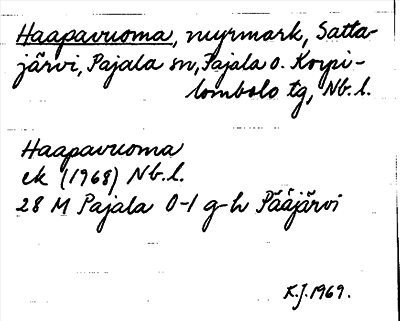 Haapavuoma, myrmark, Satta-
järvi, Pajala sn, Pajala o. Korpi-
lombolo tg, Nb. l.
Haapavuoma
ek (1968) Nb. l.
28 M Pajala 0-1 g-h Pääjärvi
K.J. 1969.